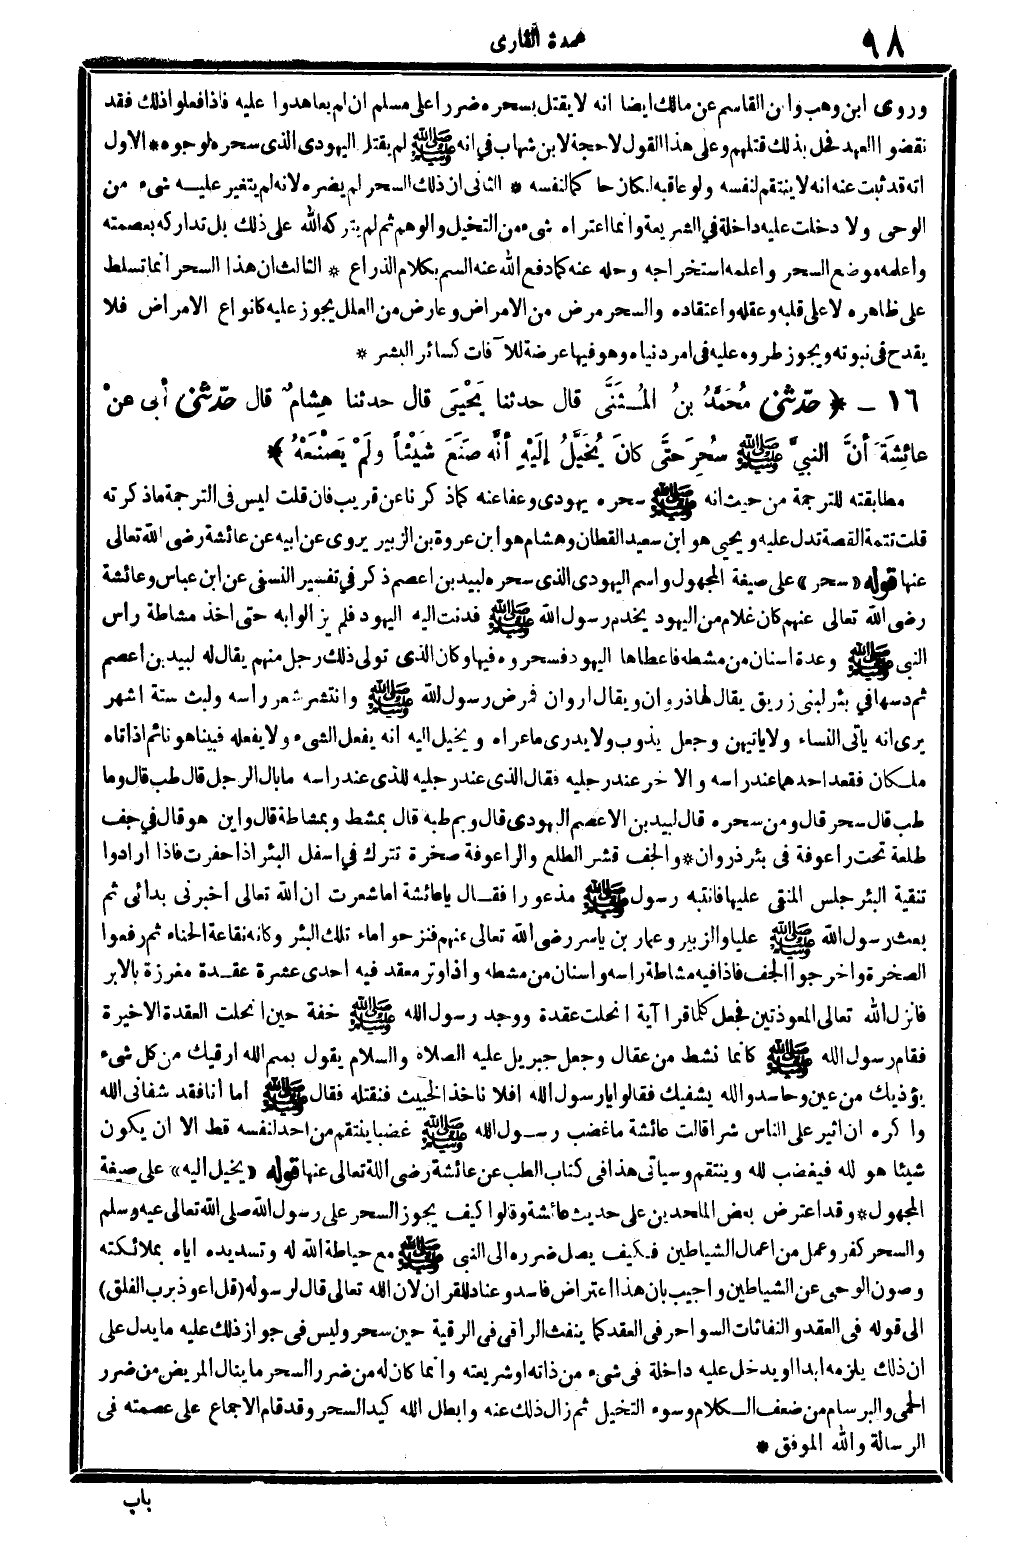 ٩٨
عمدة القارى
وروى ابن وهب وابن القاسم عن مالك ايضا انه لا يقتل بسحره ضررا على مسلم ان لم يعاهدوا عليه فاذا فعلوا ذلك فقد
نقضوا العهد فحل بذلك قتلهم وعلى هذا القول لا حجة لابن شهاب فى انه ﷺ لم يقتل اليهودى الذى سحره لوجوه * الاول
انه قد ثبت عنه انه لا ينتقم لنفسه ولو عاقبه لكان حاكما لنفسه * الثانى ان ذلك السحر لم يضره لانه لم يتغير عليه شىء من
الوحى ولا دخلت عليه داخلة في الشريعة وانما اعتراه شىء من التخيل والوهم ثم لم يتركه الله على ذلك بل تداركه بعصمته
واعلمه موضع السحر واعلمه استخراجه وحله عنه كما دفع الله عنه السم بكلام الذراع * الثالث ان هذا السحر انما تسلط
على ظاهره لا على قلبه وعقله واعتقاده والسحر مرض من الامراض وعارض من العلل يجوز عليه كانواع الامراض فلا
يقدح فى نبوته ويجوز طروه عليه فى امر دنياه وهو فيها عرضة للآفات كسائر البشر *
١٦ ـ ﴿ حدّثنى مُحَمَّدُ بنُ المُثَنَّى قال حدثنا يَحْيَى قال حدثنا هِشامٌ قال حدّثنى أبى عنْ
عائِشَةَ أنَّ النبيَّ ﷺ سُحِرَ حتَّى كانَ يُخَيَّلُ إلَيْهِ أنَّه صَنَعَ شَيْئاً ولَمْ يَصْنَعْهُ ﴾
مطابقته للترجمة من حيث انه ﷺ سحره يهودى وعفا عنه كما ذكرنا عن قريب فان قلت ليس فى الترجمة ما ذكرته
قلت تتمة القصة تدل عليه ويحيى هو ابن سعيد القطان وهشام هو ابن عروة بن الزبير يروى عن ابيه عن عائشة رضى الله تعالى
عنها قوله «سحر» على صيغة المجهول واسم اليهودى الذى سحره لبيد بن اعصم ذكر في تفسير النسفى عن ابن عباس وعائشة
رضى الله تعالى عنهم كان غلام من اليهود يخدم رسول الله ﷺ فدنت اليه اليهود فلم يزالوا به حتى اخذ مشاطة راس
النبى ﷺ وعدة اسنان من مشطه فاعطاها اليهود فسحروه فيها وكان الذى تولى ذلك رجل منهم يقال له لبيد بن اعصم
ثم دسها في بئر لبنى زريق يقال لها ذروان ويقال اروان فمرض رسول الله ﷺ وانتشر شعر راسه ولبث ستة اشهر
يرى انه ياتى النساء ولا ياتيهن وجعل يذوب ولا يدرى ما عراه ويخيل اليه انه يفعل الشىء ولا يفعله فبينا هو نائم اذ اتاه
ملكان فقعد احدهما عند راسه والآخر عند رجليه فقال الذى عند رجليه للذى عند راسه ما بال الرجل قال طب قال وما
طب قال سحر قال ومن سحره قال لبيد بن الاعصم اليهودى قال وبم طبه قال بمشط وبمشاطة قال واين هو قال في جف
طلعة تحت راعوفة فى بئر ذروان * والجف قشر الطلع والراعوفة صخرة تترك في اسفل البئر اذا حفرت فاذا ارادوا
تنقية البئر جلس المنقى عليها فانتبه رسول ﷺ مذعورا فقال ياعائشة اما شعرت ان الله تعالى اخبرنى بدائى ثم
بعث رسول الله ﷺ عليا والزبير وعمار بن ياسر رضى الله تعالى عنهم فنزحوا ماء تلك البئر وكانه نقاعة الحناء ثم رفعوا
الصخرة واخرجوا الجف فاذا فيه مشاطة راسه واسنان من مشطه واذا وتر معقد فيه احدى عشرة عقدة مغرزة بالابر
فانزل الله تعالى المعوذتين فجعل كلما قرا آية انحلت عقدة ووجد رسول الله ﷺ خفة حين انحلت العقدة الاخيرة
فقام رسول الله ﷺ كانما نشط من عقال وجعل جبريل عليه الصلاة والسلام يقول بسم الله ارقيك من كل شىء
يؤذيك من عين وحاسد والله يشفيك فقالوا يارسول الله افلا ناخذ الخبيث فنقتله فقال ﷺ اما أنا فقد شفانى الله
واكره ان اثير على الناس شرا قالت عائشة ما غضب رسول الله ﷺ غضبا ينتقم من احد لنفسه قط الا ان يكون
شيئا هو لله فيغضب لله وينتقم وسياتى هذا فى كتاب الطب عن عائشة رضى الله تعالى عنها قوله «يخيل اليه» على صيغة
المجهول * وقد اعترض بعض الملحدين على حديث عائشة وقالوا كيف يجوز السحر على رسول الله صلى الله تعالى عيه وسلم
والسحر كفر وعمل من اعمال الشياطين فكيف يصل ضرره الى النبى ﷺ مع حياطة الله له وتسديده اياه بملائكته
وصون الوحى عن الشياطين واجيب بان هذا اعتراض فاسد وعناد للقران لان الله تعالى قال لرسوله (قل اعوذ برب الفلق)
الى قوله فى العقد والنفاثات السواحر فى العقد كما ينفث الراقى فى الرقية حين سحر وليس فى جواز ذلك عليه ما يدل على
ان ذلك يلزمه ابدا او يدخل عليه داخلة فى شىء من ذاته او شريعته وانما كان له من ضرر السحر ما ينال المريض من ضرر
الحمى والبرسام من ضعف الكلام وسوء التخيل ثم زال ذلك عنه وابطل الله كيد السحر وقد قام الاجماع على عصمته فى
الرسالة والله الموفق *
باب